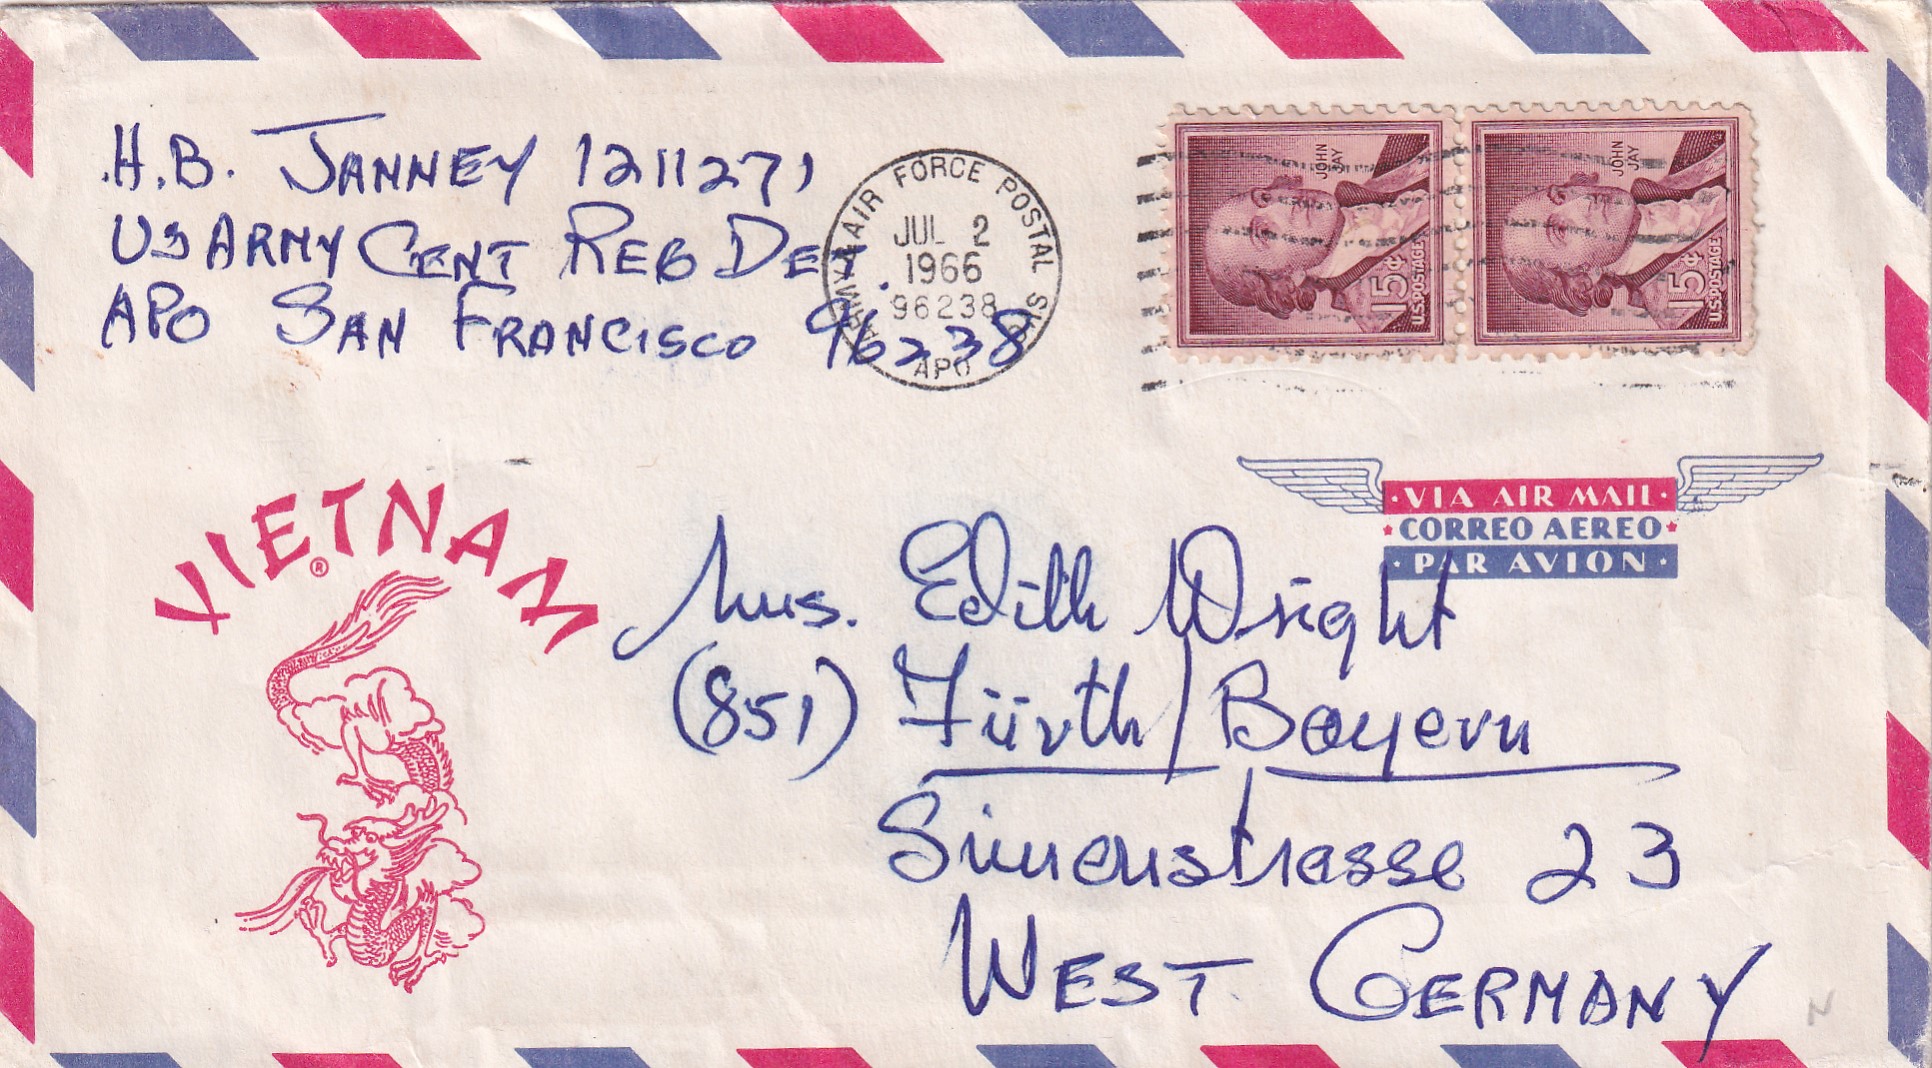 H.B. JANNEY 1211271
US ARMY CENT REG DET.
APO SAN FRANCISCO 96238
ARMY & AIR FORCE POSTAL SVC
JUL 2
1966
96238
APO
JOHN JAY
15¢
U.S. POSTAGE
JOHN JAY
15¢
U.S. POSTAGE
·VIA AIR MAIL·
CORREO AEREO
·PAR AVION·
VIETNAM
®
Mrs. Edith Wright
(851) Fürth/Bayern
23
WEST GERMANY
N